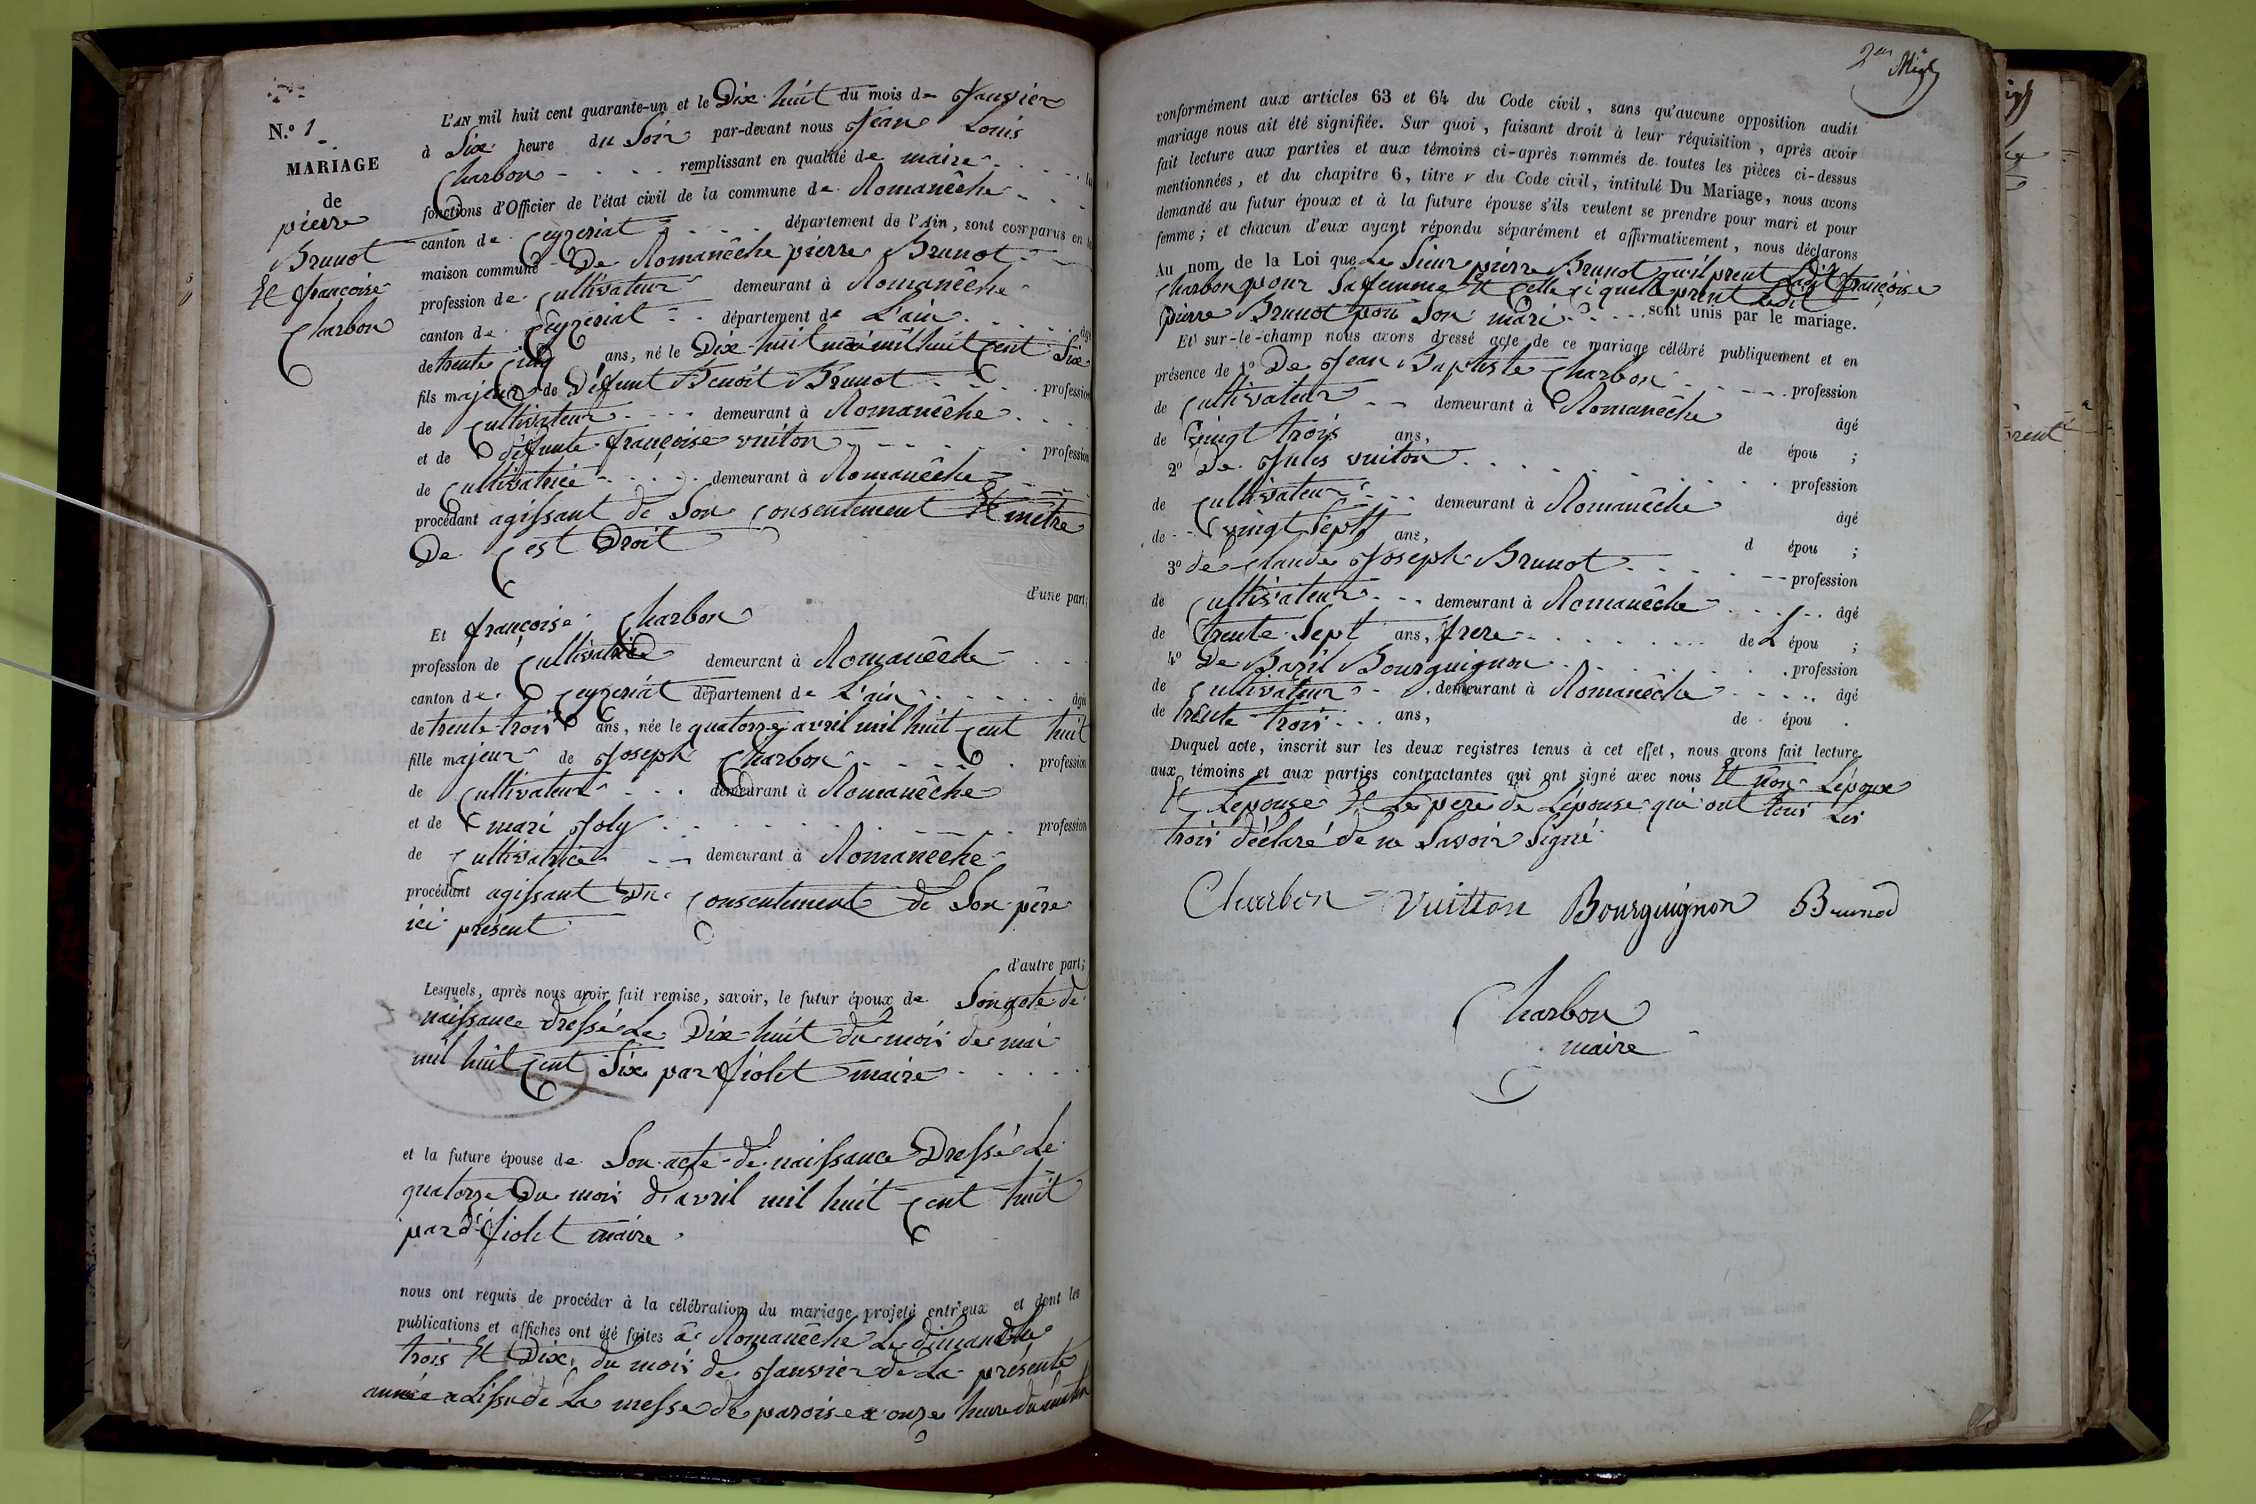 N.º 1
MARIAGE
de
pierre
Brunot
Et françoise
Charbon
L'AN mil huit cent quarante-un et le Dix huit du mois de Janvier
à Six heure du Soir par-devant nous Jean Louis
Charbon remplissant en qualité de maire
fonctions d'Officier de l'état civil de la commune de Romanêche
canton de Ceyzeriat département de l'Ain, sont comparus en
maison commune De Romanêche pierre Brunot
profession de Cultivateur demeurant à Romanêche
canton de Ceyzeriat département de L'ain âgé
de trente cinq ans, né le Dix-huit mai mil huit Cent Six
fils majeur de Défunt Benoit Brunot profession
de Cultivateur demeurant à Romanêche
et de défunte françoise vuiton profession
de Cultivatrice demeurant à Romanêche
procédant agissant de Son Consentement Et mètre
De Cest Droit
d'une part;
Et françoise Charbon
profession de Cultivatrice demeurant à Romanêche
canton de Ceyzeriat département de L'ain âgée
de trente-trois ans, née le quatorze avril mil huit Cent huit
fille majeur de Joseph Charbon profession
de Cultivateur demeurant à Romanêche
et de mari Joly profession
de Cultivatrice demeurant à Romanêche
procédant agissant Du Consentement de Son père
ici présent
d'autre part;
Lesquels, après nous avoir fait remise, savoir, le futur époux de Son acte de
naissance dressé Le Dix-huit du mois de mai
mil huit Cent Six par fiolet maire
et la future épouse de Son acte de naissance Dressé Le
quatorze Du mois d'avril mil huit Cent huit
par fiolet maire
nous ont requis de procéder à la célébration du mariage projeté entr'eux et dont les
publications et affiches ont été faites à Romanêche Le dimanche
trois Et Dix du mois de Janvier de La présente
année a Lissu de La messe de parois a onze heure du matin
conformément aux articles 63 et 64 du Code civil, sans qu'aucune opposition audit
mariage nous ait été signifiée. Sur quoi, faisant droit à leur réquisition, après avoir
fait lecture aux parties et aux témoins ci-après nommés de toutes les pièces ci-dessus
mentionnées, et du chapitre 6, titre V du Code civil, intitulé Du Mariage, nous avons
demandé au futur époux et à la future épouse s'ils veulent se prendre pour mari et pour
femme; et chacun d'eux ayant répondu séparément et affirmativement, nous déclarons
Au nom de la Loi que Le Sieur pierre Brunot qu'il prent Ladit françoise
Charbon pour Sa femme Et Celle ci quelle prent Ledit
pierre Brunot pour Son mari sont unis par le mariage.
Et sur-le-champ nous avons dressé acte de ce mariage célébré publiquement et en
présence de 1º De Jean Baptiste Charbon profession
de Cultivateur demeurant à Romanêche âgé
de vingt trois ans, de épou ;
2º De Jules vuiton profession
de Cultivateur demeurant à Romanêche âgé
de vingt Sept ans, d épou ;
3º de Claude Joseph Brunot profession
de Cultivateur demeurant à Romanêche âgé
de trente Sept ans, frere de L épou ;
4º De Bazil Bourguignon profession
de Cultivateur demeurant à Romanêche âgé
de trente trois ans, de épou .
Duquel acte, inscrit sur les deux registres tenus à cet effet, nous avons fait lecture
aux témoins et aux parties contractantes qui ont signé avec nous Et non Lépoux
Et Lepouse Et Le pere de Lépouse qui ont tous Les
trois déclaré de ne Savoir Signé
Charbon Vuitton Bourguignon Brunod
Charbon
maire